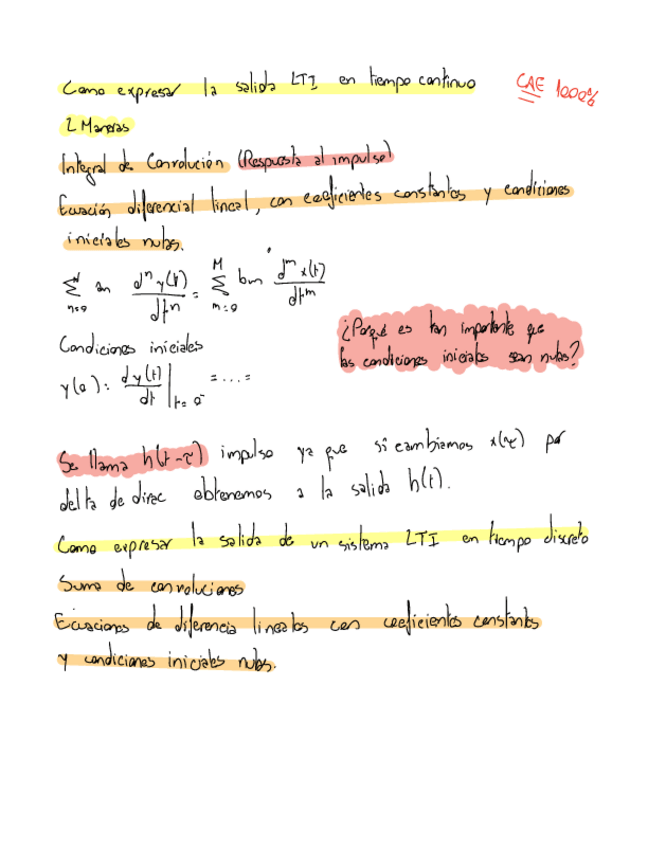 Como expresar la salida LTI en tiempo continuo
CAE 1000%
2 Maneras
Integral de Convolución (Respuesta al impulso)
Ecuación diferencial lineal, con coeficientes constantes y condiciones
iniciales nulas.
N
∑ an dⁿy(t)/dtⁿ = ∑ bm dᵐx(t)/dtᵐ
n=0 m=0
M
¿Porqué es tan importante que
las condiciones iniciales sean nulas?
Condiciones iniciales
y(0) = dy(t)/dt |t=0⁻ = ... =
Se llama h(t-τ) impulso ya que si cambiamos x(τ) por
delta de dirac obtenemos a la salida h(t).
Como expresar la salida de un sistema LTI en tiempo discreto
Suma de convoluciones
Ecuaciones de diferencia lineales con coeficientes constantes
y condiciones iniciales nulas.